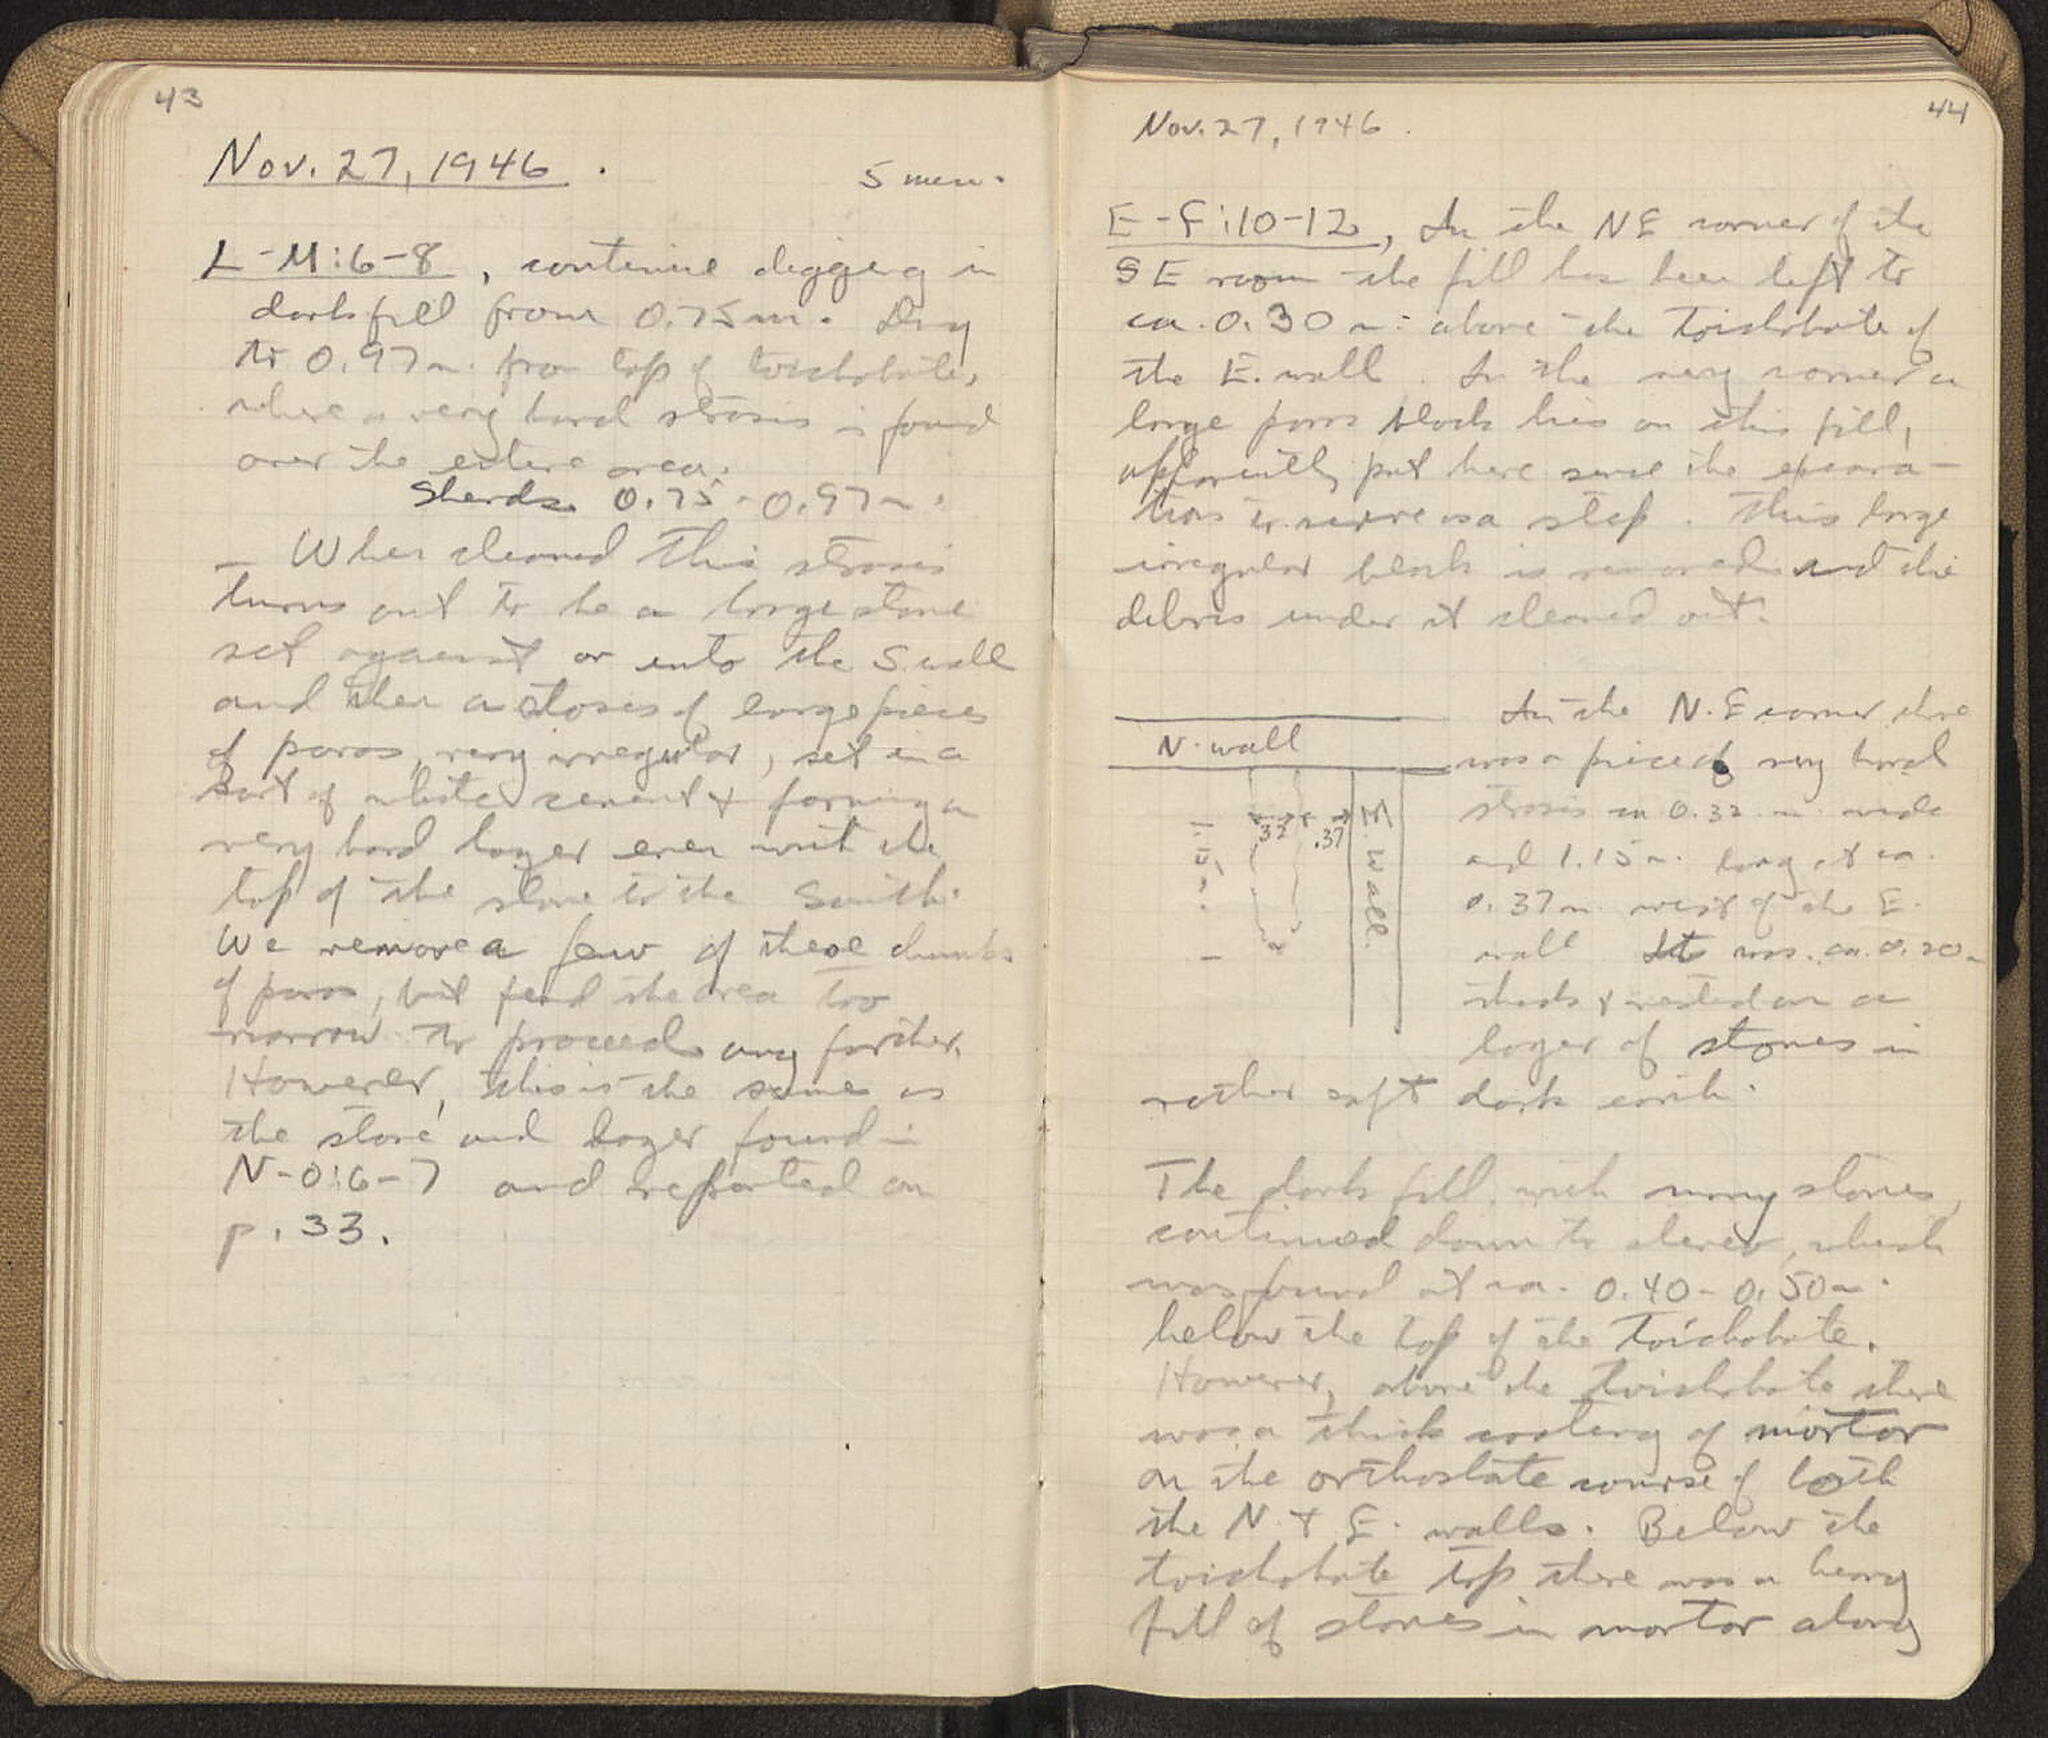 43
Nov. 27, 1946.
5 men.
L-M:6-8, continue digging in
dark fill from 0.75m. Dug
to 0.97m. from top of toichobate,
where a very hard strosis is found
over the entire area.
Sherds 0.75-0.97m.
— When cleaned this strosis
turns out to be a large stone
set against or into the S wall
and then a stosis of large pieces
of poros, very irregular, set in a
sort of white cement & forming a
very hard layer even with the
top of the stone to the South.
We remove a few of these chunks
of poros, but find the area too
narrow to proceed any further.
However, this is the same as
the stone and layer found in
N-O:6-7 and reported on
p. 33.
44
Nov. 27, 1946.
E-F:10-12, In the NE corner of the
SE room the fill has been left to
ca. 0.30 m. above the toichobate of
the E. wall. In the very corner a
large poros block lies on this fill,
apparently put here since the excava-
tions to serve as a step. This large
irregular block is removed and the
debris under it cleaned out.
In the N.E corner there
was a piece of very hard
strosis ca 0.32 m. wide
and 1.15 m. long at ca.
0.37m. west of the E.
wall. It was ca. 0.20m
thick & rested on a
layer of stones in
rather soft dark earth.
N. wall
.32 .37
E. Wall.
The dark fill with many stones,
continued down to stereo, which
was found at ca. 0.40-0.50m.
below the top of the toichobate.
However, above the toichobate there
was a thick coating of mortar
on the orthostate course of both
the N. & E. walls. Below the
toichobate top there was a heavy
fill of stones in mortar along